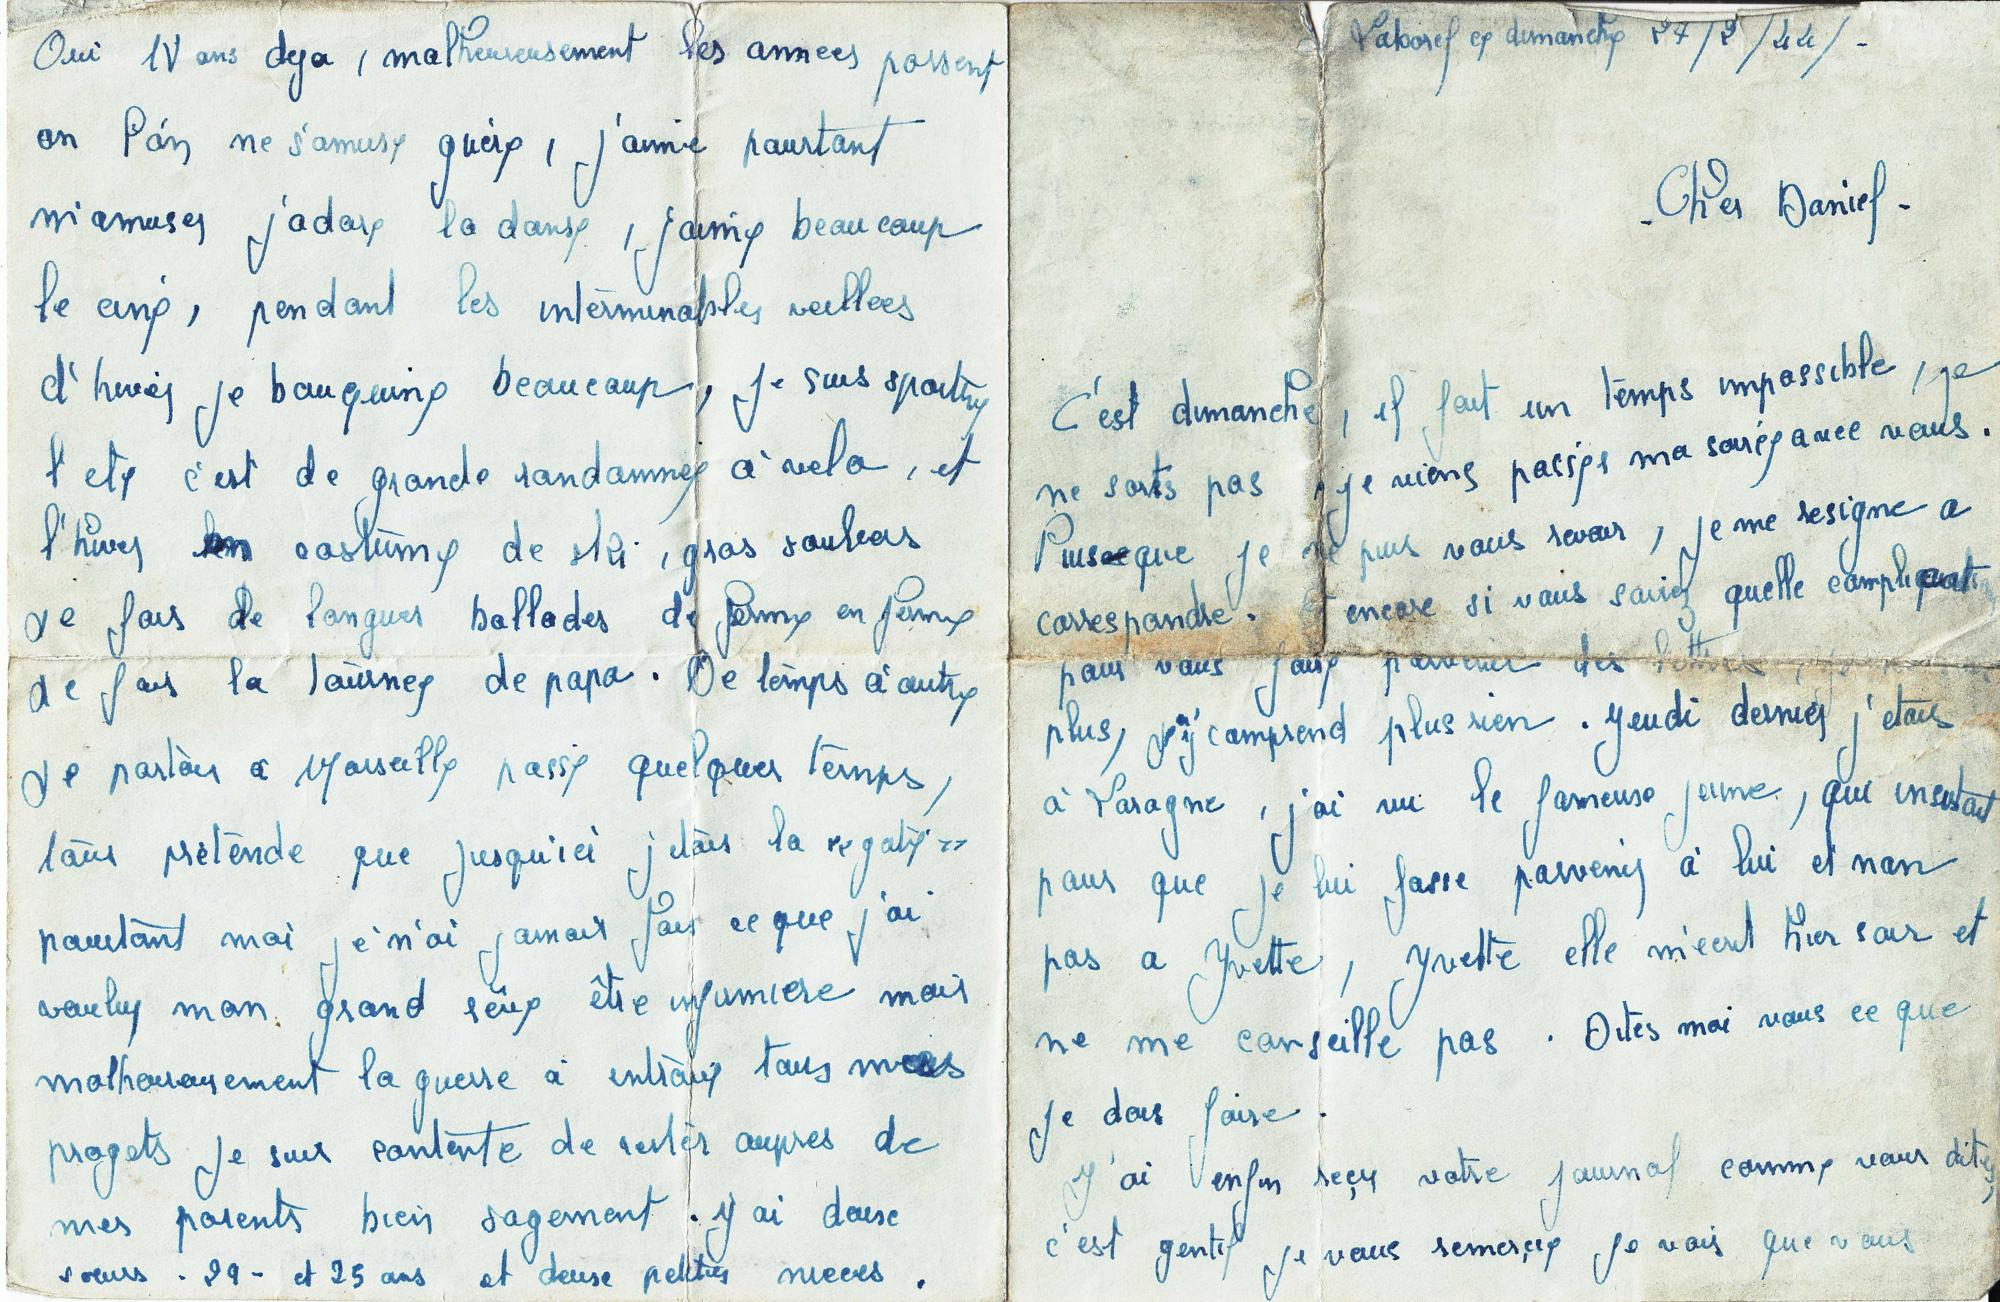 Laborel ce dimanche 27/2/44/-
- Cher Daniel -
C'est dimanche, il fait un temps impossible, je
ne sorts pas, je viens passer ma soirée avec vous.
Puisque je ne puis vous revoir, je me resigne a
correspondre. Et encore si vous saviez quelle
pour vous faire parvenir des lettres, je
plus, j'y comprend plus rien. Jeudi dernier j'etais
à Laragne, j'ai vu le fameuse jeune, qui insistait
pour que je lui fasse parvenir à lui et non
pas a Yvette, Yvette elle m'ecrit hier soir et
ne me conseille pas. Dites moi vous ce que
je dois faire.
J'ai enfin reçu votre journal comme vous dites,
c'est gentil je vous remercie je vois que vous
Oui 1V ans deja, malheureusement les annees passent
on l'on ne s'amuse guère, j'aime pourtant
m'amuser j'adore la danse, j'aime beaucoup
le ciné, pendant les intérminables veillees
d'hiver je bouquine beaucoup, je suis sportive
l'ete c'est de grande randonnée à velo, et
l'hiver en costume de ski, gros souliers
je fais de longues ballades de ferme en ferme
je fais la tournée de papa. De temps à autre
je partais a Marseille passé quelques temps,
tous prétende que jusqu'ici j'etais la gatée
pourtant moi je n'ai jamais fais ce que j'ai
voulu mon grand rêve être infirmiere mais
malheureusement la guerre à entravé tous mes
progets je suis contente de rester aupres de
mes parents bien sagement. J'ai deuse
soeurs. 29- et 25 ans et deuse petites nieces.